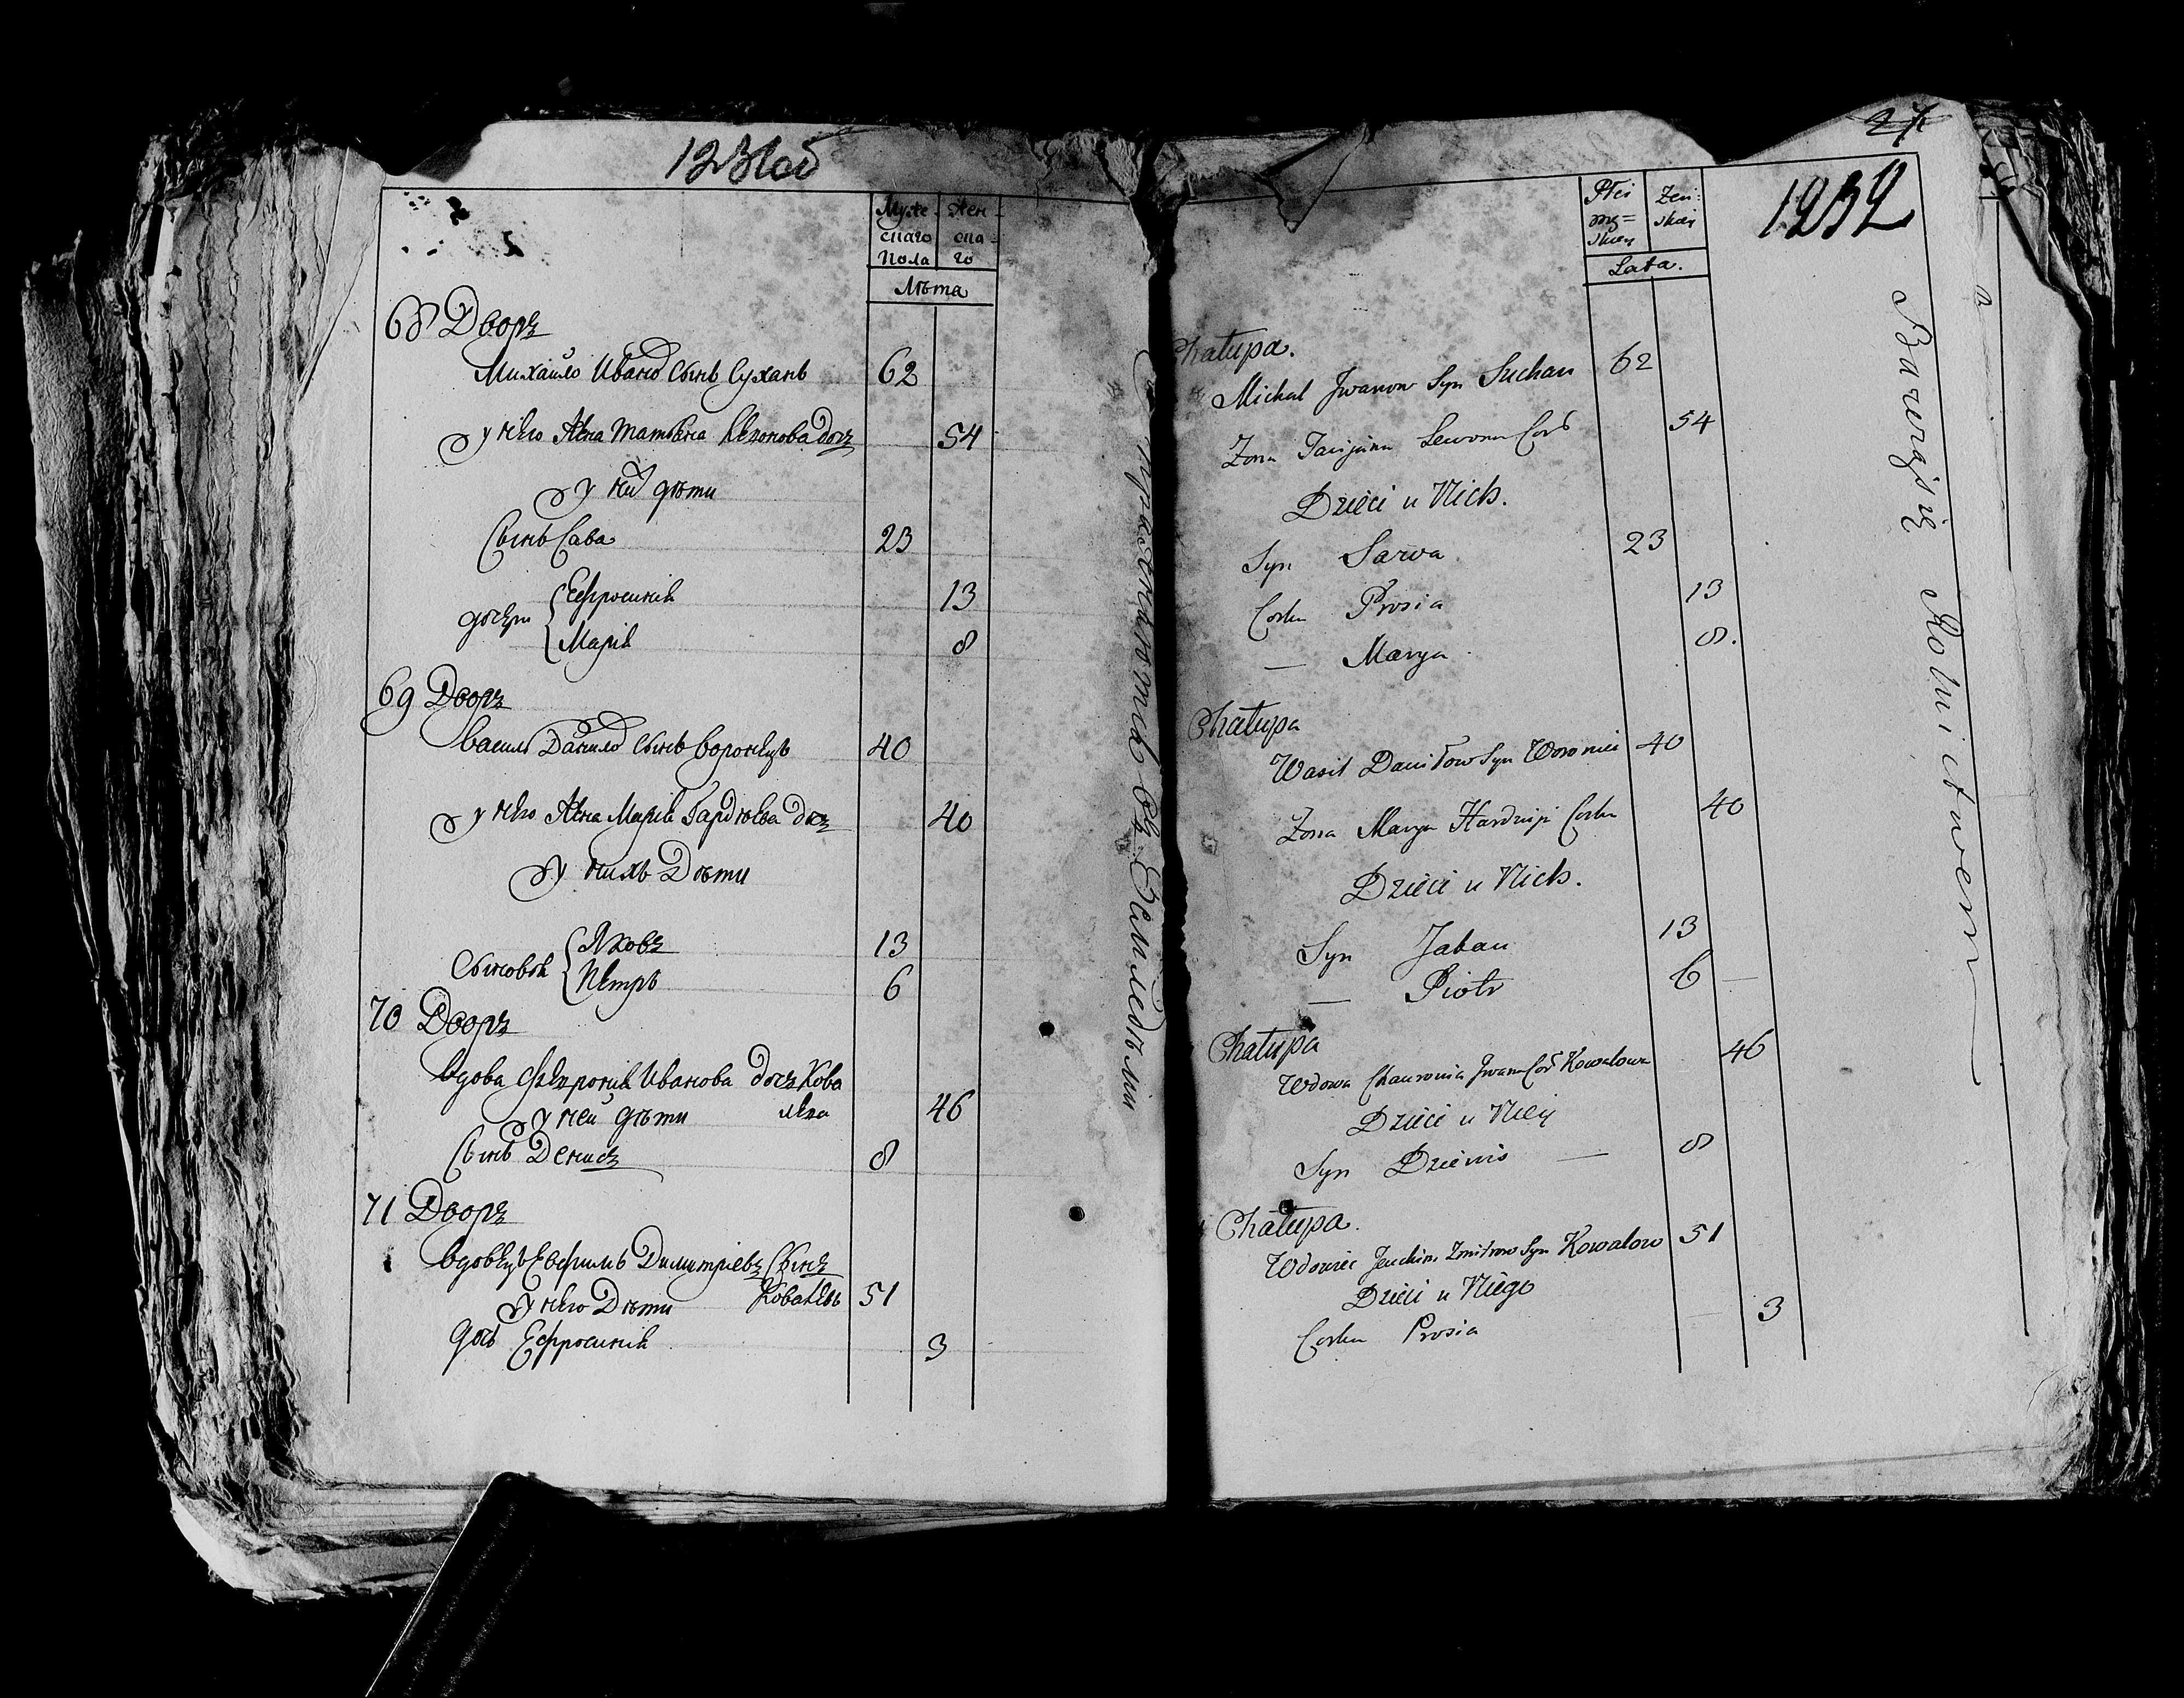 1231об
Муже- Жен-
скаго ска-
Пола го
Лѣта
68 Дворъ
Михайло Ивановъ Сынъ Суханъ 62
у него Жена Татьяна Левонова дочъ 54
у них дѣти
Сынъ Сава 23
дочери Ефросинія 13
Марія 8
69 Дворъ
Василь Данилов Сынъ Воронецъ 40
у него Жена Марія Гардѣева дочъ 40
у нихъ Дѣти
Сыновья Яковъ 13
Петръ 6
70 Дворъ
вдова Иванова дочъ Кова
лева 46
у ней дѣти
Сынъ Денисъ 8
71 Дворъ
вдовецъ Ефимъ Димитріевъ Сынъ
Ковалевъ 51
у него Дѣти
дочь Ефросинія 3
въ Земледѣліи
1232
Płci Żeń-
mę= skiey
skiey
Lata.
Chałupa.
Michał Jwanow Syn Suchan 62
Zona Tacijana Lewona Cor 54
Dzieci u Nich.
Syn Sawa 23
Corka Prosia 13
— Marya 8.
Chałupa
Wasil Daniłow Syn Woroniec 40
Zona Marya Hardzieja Corka 40
Dzieci u Nich.
Syn Jakau 13
— Piotr 6 —
Chałupa
Wdowa Chauronia Jwana Cor Kowalowa 46
Dzieci u Niey
Syn Dzienis — 8
Chałupa.
Wdowiec Jauchim Zmitrow Syn Kowalow 51
Dzieci u Niego
Corka Prosia 3
Bawiąsię Rolnictwem